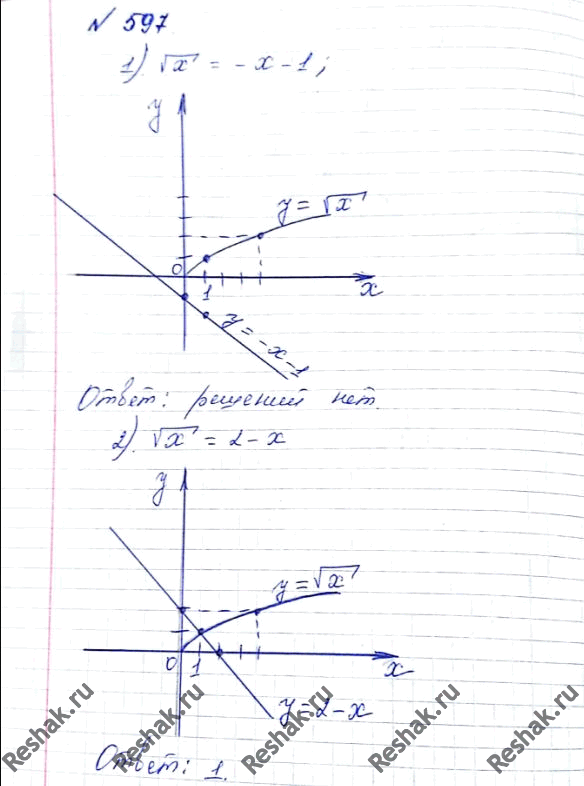 № 597
1) √x = - x - 1;
y
y = √x
0
1
x
y = -x-1
Ответ: решений нет.
2) √x = 2 - x
y
y = √x
0
1
x
y = 2 - x
Reshak.ru Reshak.ru Reshak.ru Reshak.ru Reshak.ru
Ответ: 1.